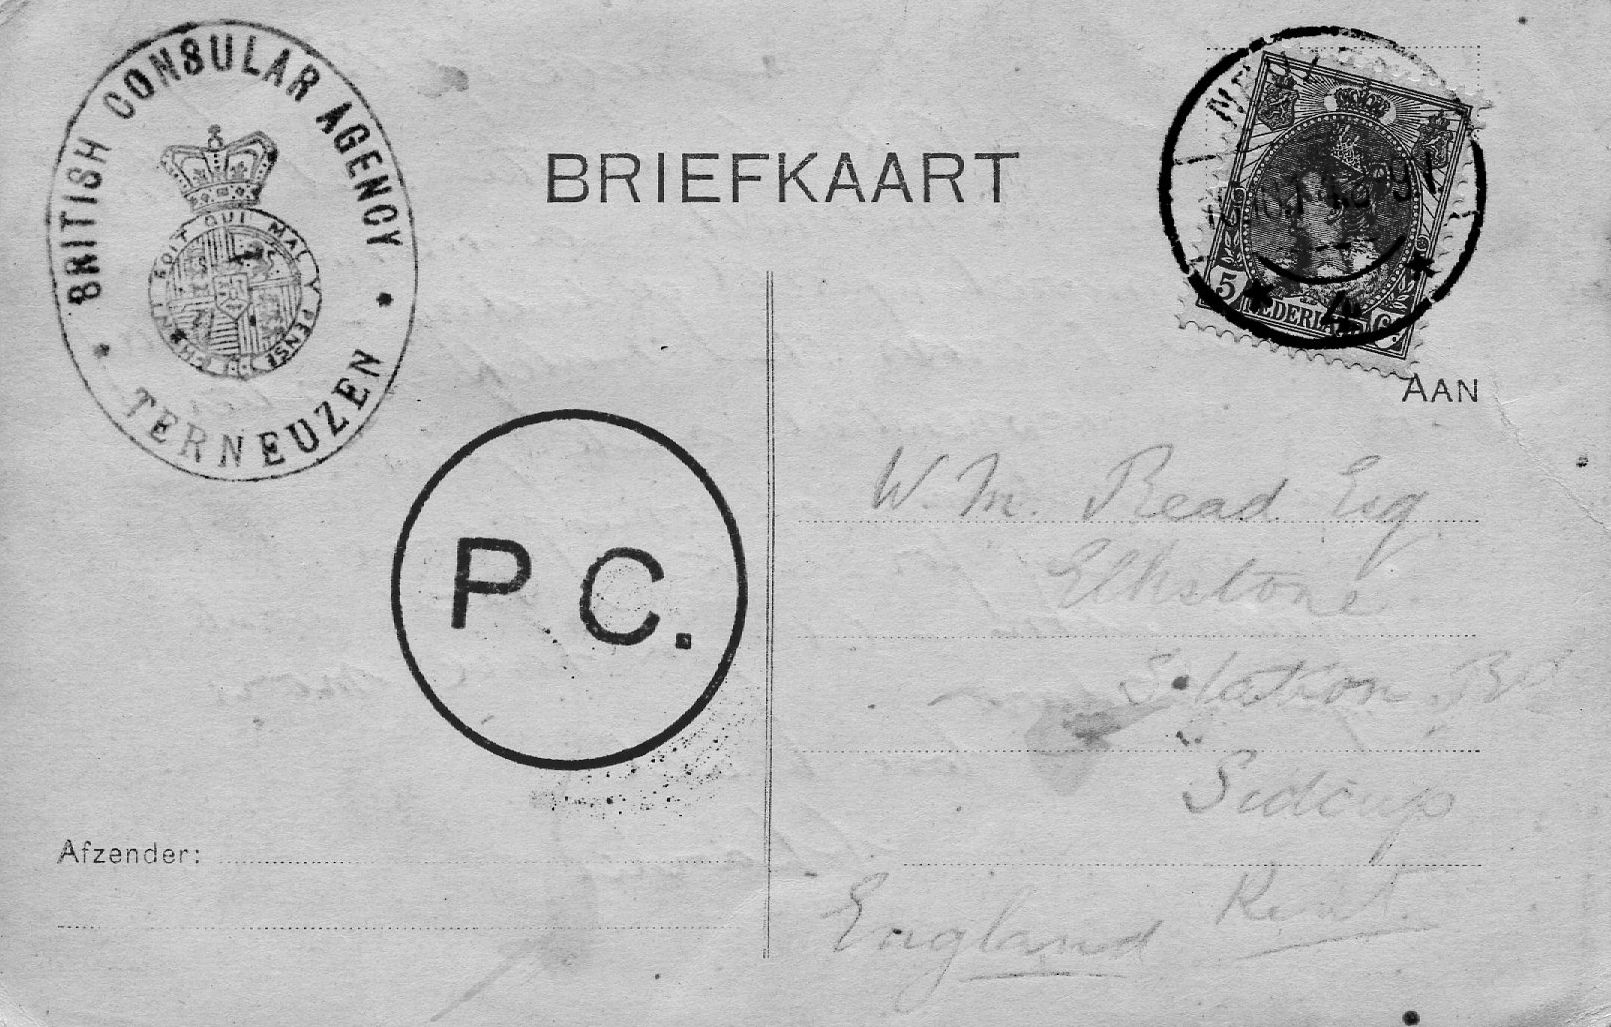 BRITISH CONSULAR AGENCY
TERNEUZEN
QUI MAL Y PENSE
BRIEFKAART
5
NEDERLAND
AAN
P C.
W. M. Read Esq
Elkstone
Station Rd
Sidcup
Kent.
England
Afzender: